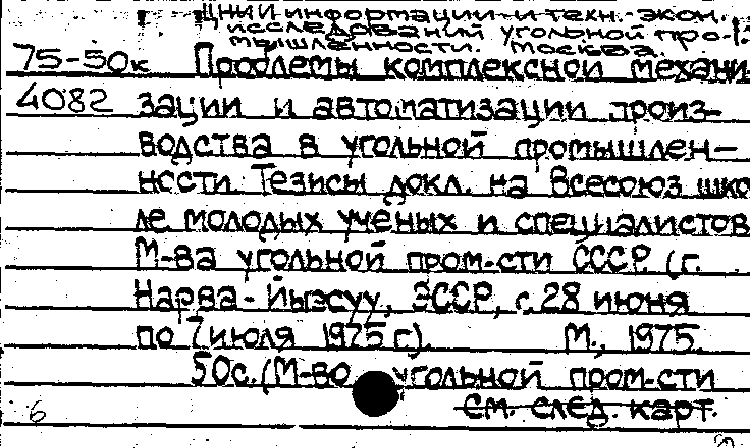 ЦНИИ информации и техн.-экон.
исследований угольной про-
мышленности. Москва.
75-50к Проблемы комплексной механи
4082 зации и автоматизации произ-
водства в угольной промышлен-
ности. Тезисы докл. на Всесоюз шко
ле молодых учёных и специалистов
М-ва угольной пром-сти СССР. (г.
Нарва-Йыэсуу, ЭССР, с 28 июня
по 7 июля 1975 г). М., 1975.
50с. (М-во угольной пром-сти
6 см. след. карт.